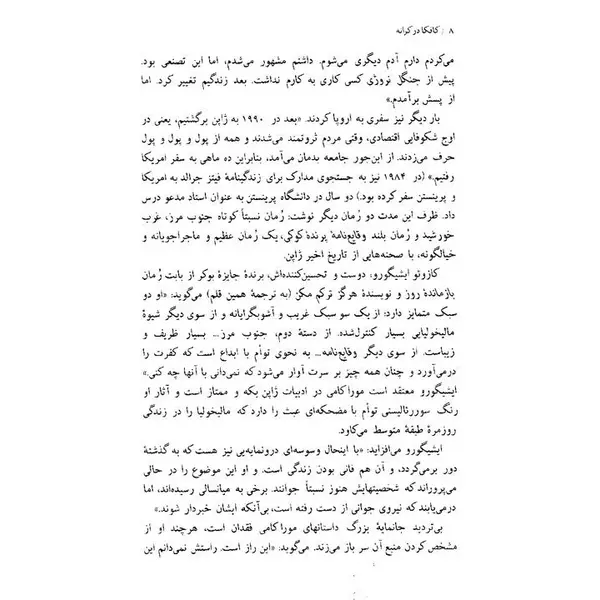 ۸ / کافکا در کرانه
می‌کردم دارم آدم دیگری می‌شوم. داشتم مشهور می‌شدم، اما این تصنعی بود.
پیش از جنگل نروژی کسی کاری به کارم نداشت. بعد زندگیم تغییر کرد. اما
از پسش برآمدم.»
بار دیگر نیز سفری به اروپا کردند. «بعد در ۱۹۹۰ به ژاپن برگشتیم، یعنی در
اوج شکوفایی اقتصادی، وقتی مردم ثروتمند می‌شدند و همه از پول و پول و پول
حرف می‌زدند. از این‌جور جامعه بدمان می‌آمد، بنابراین ده ماهی به سفر امریکا
رفتیم.» (در ۱۹۸۴ نیز به جستجوی مدارک برای زندگینامۀ فیتز جرالد به امریکا
و پرینستن سفر کرده بود.) دو سال در دانشگاه پرینستن به عنوان استاد مدعو درس
داد. ظرف این مدت دو رُمان دیگر نوشت: رُمان نسبتاً کوتاه جنوب مرز، غرب
خورشید و رُمان بلند وقایع‌نامۀ پرندۀ کوکی، یک رُمان عظیم و ماجراجویانه و
خیالگونه، با صحنه‌هایی از تاریخ اخیر ژاپن.
کازوئو ایشیگورو، دوست و تحسین‌کننده‌اش، برندۀ جایزۀ بوکر از بابت رُمان
بازماندۀ روز و نویسندۀ هرگز ترکم مکن (به ترجمۀ همین قلم) می‌گوید: «او دو
سبک متمایز دارد: از یک سو سبک غریب و آشوبگرایانه و از سوی دیگر شیوۀ
مالیخولیایی بسیار کنترل‌شده. از دستۀ دوم، جنوب مرز... بسیار ظریف و
زیباست. از سوی دیگر وقایع‌نامه... به نحوی توأم با ابداع است که کفرت را
درمی‌آورد و چنان همه چیز بر سرت آوار می‌شود که نمی‌دانی با آنها چه کنی.»
ایشیگورو معتقد است موراکامی در ادبیات ژاپن یکه و ممتاز است و آثار او
رنگ سوررئالیستی توأم با مضحکه‌ای عبث را دارد که مالیخولیا را در زندگی
روزمرۀ طبقۀ متوسط می‌کاود.
ایشیگورو می‌افزاید: «با اینحال وسوسه‌ای درونمایه‌یی نیز هست که به گذشتۀ
دور برمی‌گردد، و آن هم فانی بودن زندگی است. و او این موضوع را در حالی
می‌پروراند که شخصیتهایش هنوز نسبتاً جوانند. برخی به میانسالی رسیده‌اند، اما
درمی‌یابند که نیروی جوانی از دست رفته است، بی‌آنکه ایشان خبردار شوند.»
بی‌تردید جانمایۀ بزرگ داستانهای موراکامی فقدان است، هرچند او از
مشخص کردن منبع آن سر باز می‌زند. می‌گوید: «این راز است. راستش نمی‌دانم این